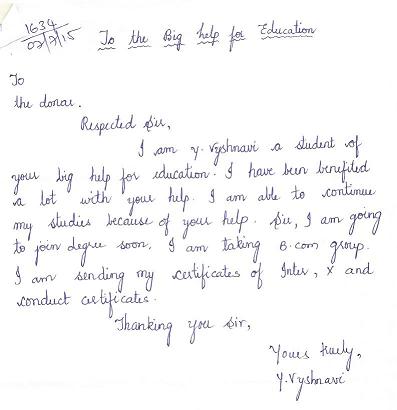 1634
07/7/15
To the Big help for Education
To
the donar.
Respected Sir,
I am y. vyshnavi a student of
your big help for education. I have been benefited
a lot with your help. I am able to continue
my studies because of your help. Sir, I am going
to join degree soon. I am taking B.com group.
I am sending my certificates of Inter, X and
conduct certificates.
Thanking you Sir,
Yours truely,
Y.Vyshnavi